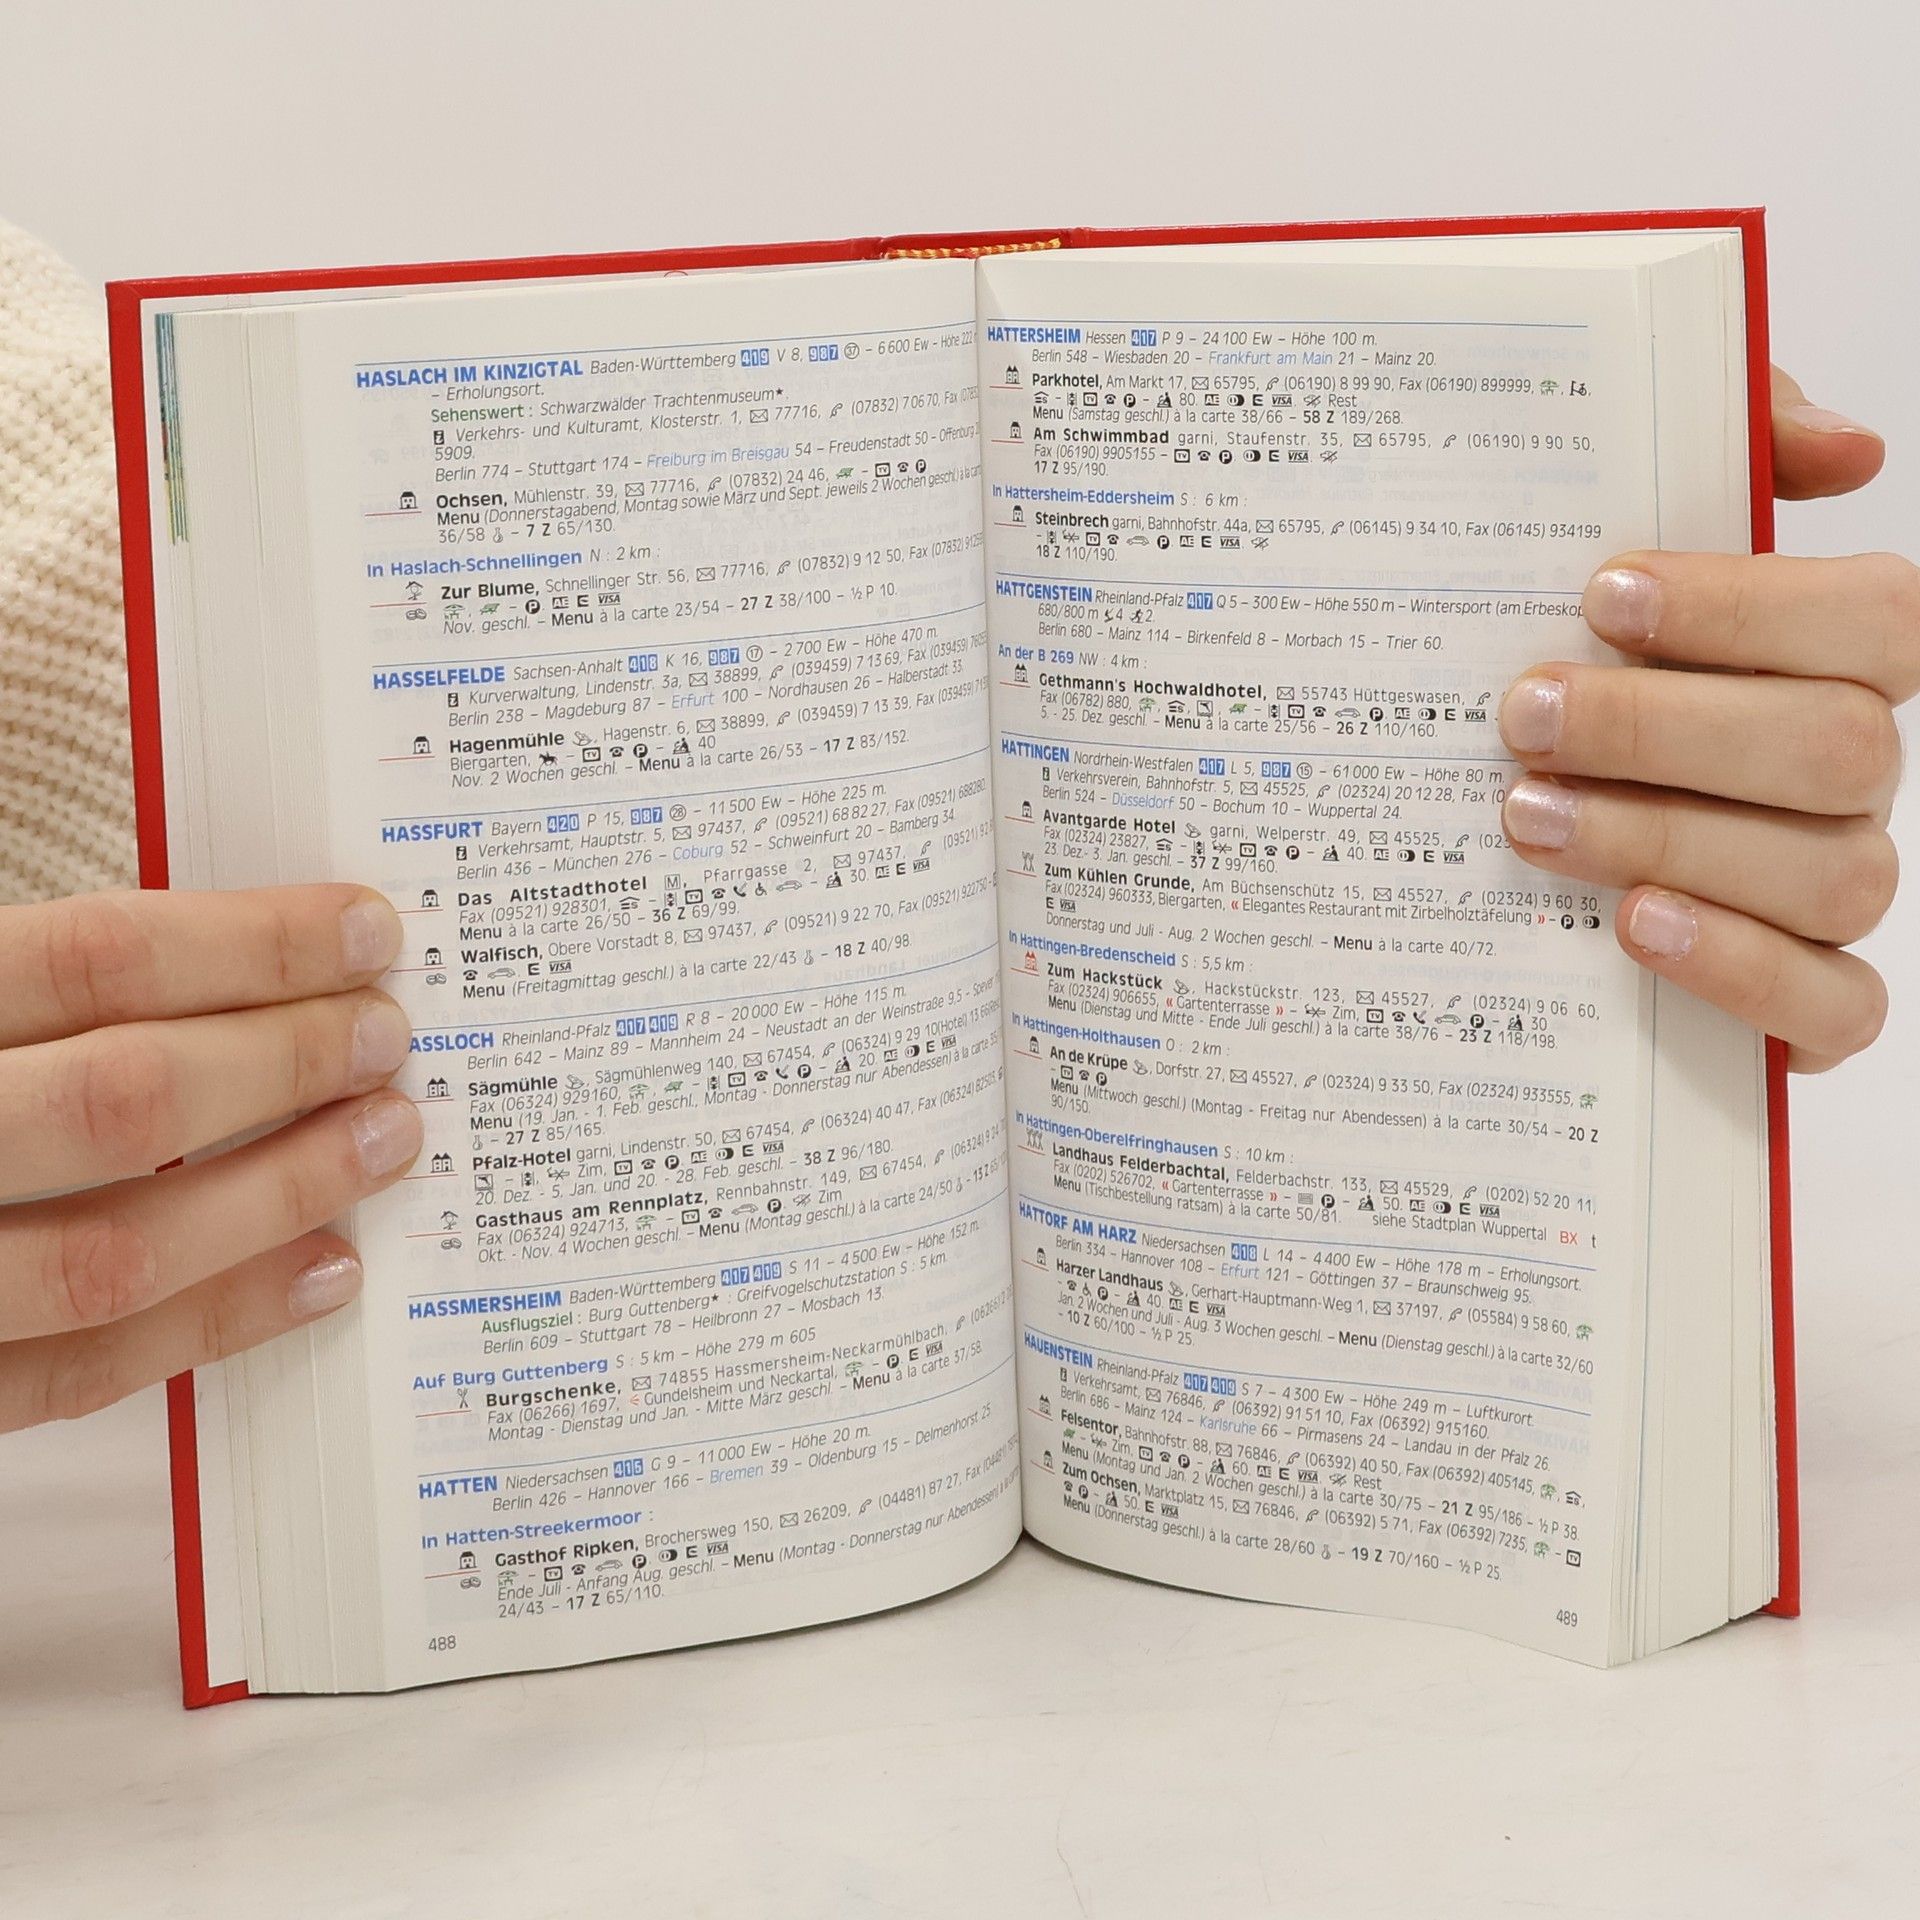 HASLACH IM KINZIGTAL Baden-Württemberg 419 V 8, 987 37 – 6 600 Ew – Höhe 222
– Erholungsort.
Sehenswert : Schwarzwälder Trachtenmuseum★.
Verkehrs- und Kulturamt, Klosterstr. 1, ✉ 77716, (07832) 7 06 70, Fax
5909.
Berlin 774 – Stuttgart 174 – Freiburg im Breisgau 54 – Freudenstadt 50 – Offenburg
Ochsen, Mühlenstr. 39, ✉ 77716, (07832) 24 46, – TV ☎ P
Menu (Donnerstagabend, Montag sowie März und Sept. jeweils 2 Wochen geschl.) à la
36/58 – 7 Z 65/130.
In Haslach-Schnellingen N : 2 km :
Zur Blume, Schnellinger Str. 56, ✉ 77716, (07832) 9 12 50, Fax (07832)
– P. AE E VISA
Nov. geschl. – Menu à la carte 23/54 – 27 Z 38/100 – ½ P 10.
HASSELFELDE Sachsen-Anhalt 418 K 16, 987 17 – 2 700 Ew – Höhe 470 m.
Kurverwaltung, Lindenstr. 3a, ✉ 38899, (039459) 7 13 69, Fax (039459)
Berlin 238 – Magdeburg 87 – Erfurt 100 – Nordhausen 26 – Halberstadt 33.
Hagenmühle, Hagenstr. 6, ✉ 38899, (039459) 7 13 39, Fax (039459)
Biergarten, – TV ☎ P – 40
Nov. 2 Wochen geschl. – Menu à la carte 26/53 – 17 Z 83/152.
HASSFURT Bayern 420 P 15, 987 26 – 11 500 Ew – Höhe 225 m.
Verkehrsamt, Hauptstr. 5, ✉ 97437, (09521) 68 82 27, Fax (09521) 688280.
Berlin 436 – München 276 – Coburg 52 – Schweinfurt 20 – Bamberg 34.
Das Altstadthotel M, Pfarrgasse 2, ✉ 97437, (09521)
Fax (09521) 928301, – TV ☎ – 30. AE E VISA
Menu à la carte 26/50 – 36 Z 69/99.
Walfisch, Obere Vorstadt 8, ✉ 97437, (09521) 9 22 70, Fax (09521) 922750 –
☎ . E VISA
Menu (Freitagmittag geschl.) à la carte 22/43 – 18 Z 40/98.
ASSLOCH Rheinland-Pfalz 417 419 R 8 – 20 000 Ew – Höhe 115 m.
Berlin 642 – Mainz 89 – Mannheim 24 – Neustadt an der Weinstraße 9,5 – Speyer
Sägmühle, Sägmühlenweg 140, ✉ 67454, (06324) 9 29 10(Hotel)
Fax (06324) 929160, – TV ☎ P – 20. AE E VISA
Menu (19. Jan. - 1. Feb. geschl., Montag - Donnerstag nur Abendessen) à la carte
– 27 Z 85/165.
Pfalz-Hotel garni, Lindenstr. 50, ✉ 67454, (06324) 40 47, Fax (06324) 82503,
– Zim, TV ☎ P. AE E VISA
20. Dez. - 5. Jan. und 20. - 28. Feb. geschl. – 38 Z 96/180.
Gasthaus am Rennplatz, Rennbahnstr. 149, ✉ 67454, (06324)
Fax (06324) 924713, – TV ☎ P. Zim
Okt. - Nov. 4 Wochen geschl. – Menu (Montag geschl.) à la carte 24/50 – 13 Z
HASSMERSHEIM Baden-Württemberg 417 419 S 11 – 4 500 Ew – Höhe 152 m.
Ausflugsziel : Burg Guttenberg★ : Greifvogelschutzstation S : 5 km.
Berlin 609 – Stuttgart 78 – Heilbronn 27 – Mosbach 13.
Auf Burg Guttenberg S : 5 km – Höhe 279 m 605
Burgschenke, ✉ 74855 Hassmersheim-Neckarmühlbach,
Fax (06266) 1697, Gundelsheim und Neckartal, – P E VISA
Montag - Dienstag und Jan. - Mitte März geschl. – Menu à la carte 37/58.
HATTEN Niedersachsen 415 G 9 – 11 000 Ew – Höhe 20 m.
Berlin 426 – Hannover 166 – Bremen 39 – Oldenburg 15 – Delmenhorst 25
In Hatten-Streekermoor :
Gasthof Ripken, Brochersweg 150, ✉ 26209, (04481) 87 27, Fax
– TV ☎ P. E VISA
Ende Juli - Anfang Aug. geschl. – Menu (Montag - Donnerstag nur Abendessen)
24/43 – 17 Z 65/110.
488
HATTERSHEIM Hessen 417 P 9 – 24 100 Ew – Höhe 100 m.
Berlin 548 – Wiesbaden 20 – Frankfurt am Main 21 – Mainz 20.
Parkhotel, Am Markt 17, ✉ 65795, (06190) 8 99 90, Fax (06190) 899999,
– TV ☎ P – 80. AE E VISA. Rest
Menu (Samstag geschl.) à la carte 38/66 – 58 Z 189/268.
Am Schwimmbad garni, Staufenstr. 35, ✉ 65795, (06190) 9 90 50,
Fax (06190) 9905155 – TV ☎ P E VISA.
17 Z 95/190.
In Hattersheim-Eddersheim S : 6 km :
Steinbrech garni, Bahnhofstr. 44a, ✉ 65795, (06145) 9 34 10, Fax (06145) 934199
– TV ☎ P. AE E VISA.
18 Z 110/190.
HATTGENSTEIN Rheinland-Pfalz 417 Q 5 – 300 Ew – Höhe 550 m – Wintersport (am Erbeskop
680/800 m 4 2.
Berlin 680 – Mainz 114 – Birkenfeld 8 – Morbach 15 – Trier 60.
An der B 269 NW : 4 km :
Gethmann's Hochwaldhotel, ✉ 55743 Hüttgeswasen,
Fax (06782) 880, – TV ☎ P. AE E VISA
5. - 25. Dez. geschl. – Menu à la carte 25/56 – 26 Z 110/160.
HATTINGEN Nordrhein-Westfalen 417 L 5, 987 15 – 61 000 Ew – Höhe 80 m.
Verkehrsverein, Bahnhofstr. 5, ✉ 45525, (02324) 20 12 28, Fax (0
Berlin 524 – Düsseldorf 50 – Bochum 10 – Wuppertal 24.
Avantgarde Hotel garni, Welperstr. 49, ✉ 45525, (023
Fax (02324) 23827, – TV ☎ P – 40. AE E VISA
23. Dez.- 3. Jan. geschl. – 37 Z 99/160.
Zum Kühlen Grunde, Am Büchsenschütz 15, ✉ 45527, (02324) 9 60 30,
Fax (02324) 960333, Biergarten, « Elegantes Restaurant mit Zirbelholztäfelung » – P
E VISA
Donnerstag und Juli - Aug. 2 Wochen geschl. – Menu à la carte 40/72.
In Hattingen-Bredenscheid S : 5,5 km :
Zum Hackstück, Hackstückstr. 123, ✉ 45527, (02324) 9 06 60,
Fax (02324) 906655, « Gartenterrasse » – Zim, TV ☎ P – 30
Menu (Dienstag und Mitte - Ende Juli geschl.) à la carte 38/76 – 23 Z 118/198.
In Hattingen-Holthausen O : 2 km :
An de Krüpe, Dorfstr. 27, ✉ 45527, (02324) 9 33 50, Fax (02324) 933555,
– TV ☎ P
Menu (Mittwoch geschl.) (Montag - Freitag nur Abendessen) à la carte 30/54 – 20 Z
90/150.
In Hattingen-Oberelfringhausen S : 10 km :
Landhaus Felderbachtal, Felderbachstr. 133, ✉ 45529, (0202) 52 20 11,
Fax (0202) 526702, « Gartenterrasse » – P – 50. AE E VISA
Menu (Tischbestellung ratsam) à la carte 50/81. siehe Stadtplan Wuppertal BX t
HATTORF AM HARZ Niedersachsen 418 L 14 – 4 400 Ew – Höhe 178 m – Erholungsort.
Berlin 334 – Hannover 108 – Erfurt 121 – Göttingen 37 – Braunschweig 95.
Harzer Landhaus, Gerhart-Hauptmann-Weg 1, ✉ 37197, (05584) 9 58 60,
– ☎ P – 40. AE E VISA
Jan. 2 Wochen und Juli - Aug. 3 Wochen geschl. – Menu (Dienstag geschl.) à la carte 32/60
– 10 Z 60/100 – ½ P 25.
HAUENSTEIN Rheinland-Pfalz 417 419 S 7 – 4 300 Ew – Höhe 249 m – Luftkurort.
Verkehrsamt, ✉ 76846, (06392) 91 51 10, Fax (06392) 915160.
Berlin 686 – Mainz 124 – Karlsruhe 66 – Pirmasens 24 – Landau in der Pfalz 26.
Felsentor, Bahnhofstr. 88, ✉ 76846, (06392) 40 50, Fax (06392) 405145,
– Zim, TV ☎ P – 60. AE E VISA. Rest
Menu (Montag und Jan. 2 Wochen geschl.) à la carte 30/75 – 21 Z 95/186 – ½ P 38.
Zum Ochsen, Marktplatz 15, ✉ 76846, (06392) 5 71, Fax (06392) 7235, – TV
☎ P – 50. E VISA
Menu (Donnerstag geschl.) à la carte 28/60 – 19 Z 70/160 – ½ P 25.
489